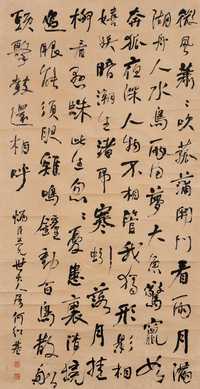 微風蕭蕭吹菰蒲開門看雨月滿
湖舟人水鳥兩同夢大魚驚竄如
奔狐夜深人物不相管我獨形影相
嬉娛暗潮生渚弔寒蚓落月挂
柳看懸蛛此生忽忽憂患裏清境
過眼能須臾雞鳴鐘動百鳥散船
頭擊鼓還相呼 兄世大人屬 何紹基